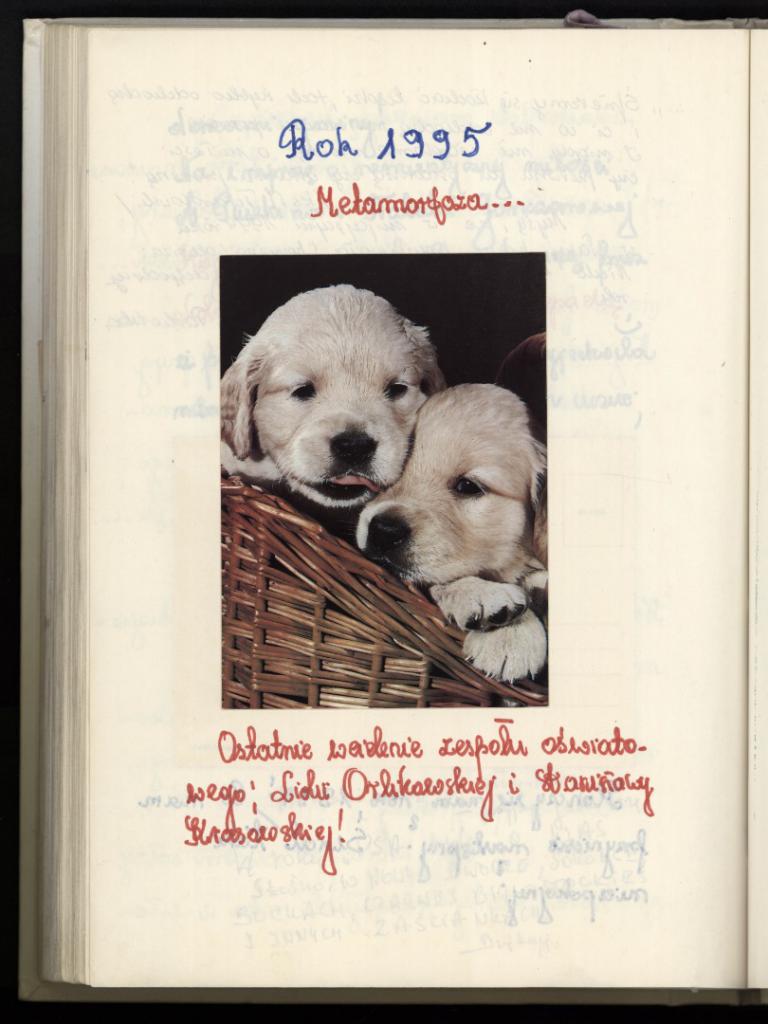 Rok 1995
Metamorfoza...
Ostatnie wcielenie zespołu oświato-
wego: Lidii Orlikowskiej i Stanisławy
Krasowskiej!